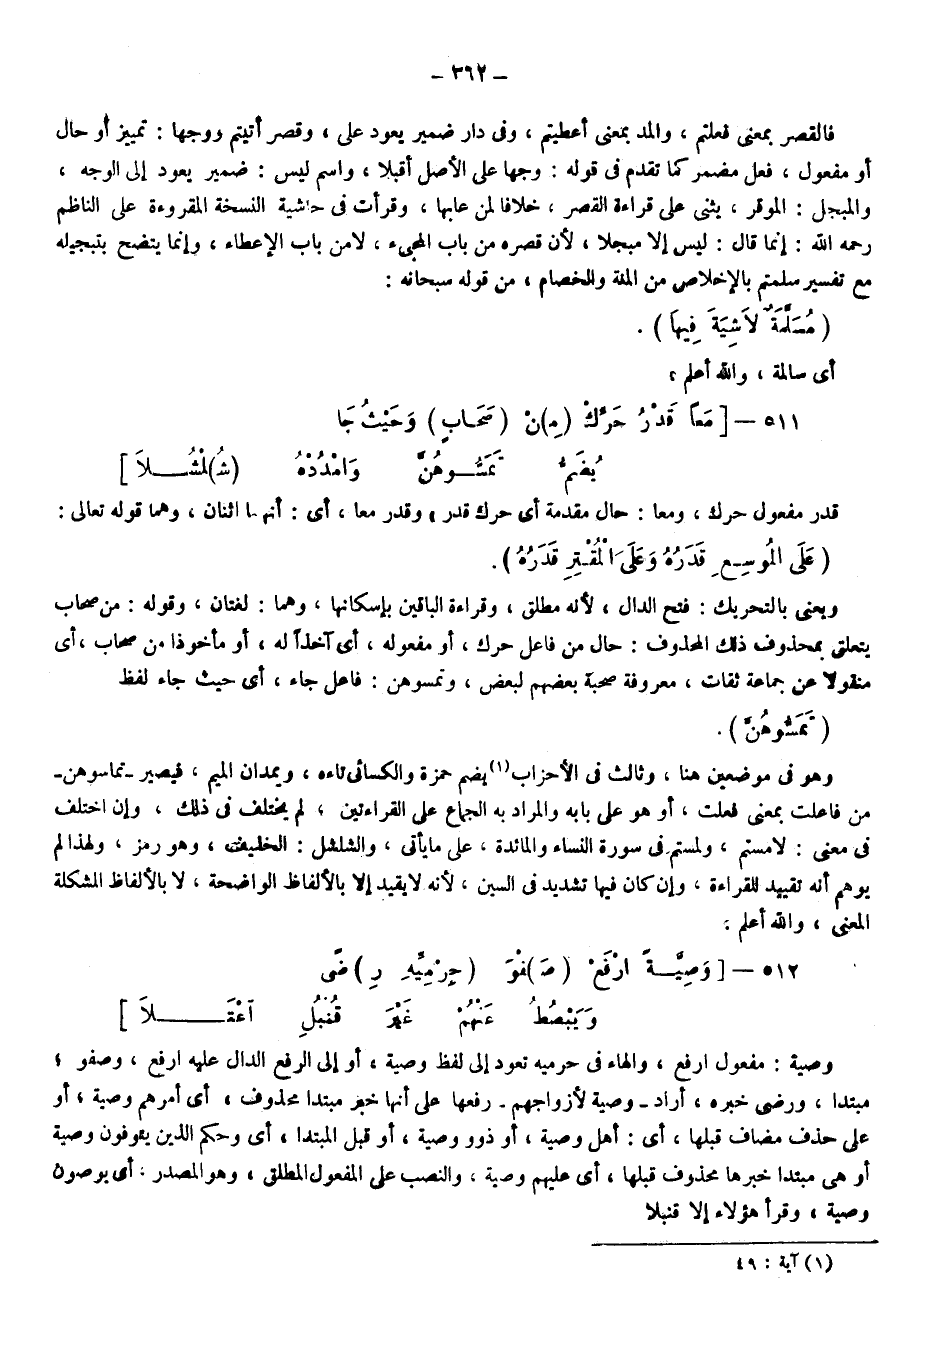 – ٣٦٢ –
فالقصر بمعنى فعلتم ، والمد بمعنى أعطيتم ، وفى دار ضمير يعود على ، وقصر أتيتم ووجها : تمييز أو حال
أو مفعول ، فعل مضمر كما تقدم فى قوله : وجها على الأصل أقبلا ، واسم ليس : ضمير يعود إلى الوجه ،
والمبجل : الموقر ، يثنى على قراءة القصر ، خلافا لمن عابها ، وقرأت فى حاشية النسخة المقروءة على الناظم
رحمه الله : إنما قال : ليس إلا مبجلا ، لأن قصره من باب المجىء ، لامن باب الإعطاء ، وإنما يتضح بتبجيله
مع تفسير سلمتم بالإخلاص من المنة والخصام ، من قوله سبحانه :
( مُسَلَّمَةٌ لاَشِيَةَ فِيهاَ ) .
أى سالمة ، والله أعلم ؛
٥١١ – [ مَعاً قَدْرُ حَرِّكْ (مِ)نْ (صَحَابٍ) وَحَيْثُ جَا
يُضَمُّ تَمَسُّــوهُنَّ وَامْدُدْهُ (شُ)لْشُــــلاَ ]
قدر مفعول حرك ، ومعا : حال مقدمة أى حرك قدر ، وقدر معا ، أى : أنهما اثنان ، وهما قوله تعالى :
( عَلَى الْمُوسِعِ قَدَرُهُ وَعَلَى الْمُقْتِرِ قَدَرُهُ ) .
ويعنى بالتحريك : فتح الدال ، لأنه مطلق ، وقراءة الباقين بإسكانها ، وهما : لغتان ، وقوله : من صحاب
يتعلق بمحذوف ذلك المحذوف : حال من فاعل حرك ، أو مفعوله ، أى آخذاً له ، أو مأخوذا من صحاب ، أى
منقولا عن جماعة ثقات ، معروفة صحبة بعضهم لبعض ، وتمسوهن : فاعل جاء ، أى حيث جاء لفظ
( تَمَسُّوهُنَّ ) .
وهو فى موضعين هنا ، وثالث فى الأحزاب(١) يضم حمزة والكسائى تاءه ، ويمدان الميم ، فيصير ـ تماسوهن ـ
من فاعلت بمعنى فعلت ، أو هو على بابه والمراد به الجماع على القراءتين ؛ لم يختلف فى ذلك ، وإن اختلف
فى معنى : لامستم ، ولمستم فى سورة النساء والمائدة ، على مايأتى ، والشلشل : الخفيف ، وهو رمز ، ولهذا لم
يوهم أنه تقييد للقراءة ، وإن كان فيها تشديد فى السين ، لأنه لايقيد إلا بالألفاظ الواضحة ، لا بالألفاظ المشكلة
المعنى ، والله أعلم :
٥١٢ – [ وَصِيَّــةً ارْفَعْ (صَ)فْوُ (حِرْمِيِّهِ رِ)ضًى
وَيَبْصُطُ عَنْهُمْ غَيْرَ قُنْبُلٍ اعْتَــــــلاَ ]
وصية : مفعول ارفع ، والهاء فى حرميه تعود إلى لفظ وصية ، أو إلى الرفع الدال عليه ارفع ، وصفو ؛
مبتدا ، ورضى خبره ، أراد ـ وصية لأزواجهم ـ رفعها على أنها خبر مبتدا محذوف ، أى أمرهم وصية ؛ أو
على حذف مضاف قبلها ، أى : أهل وصية ، أو ذوو وصية ، أو قبل المبتدا ، أى وحكم الذين يتوفون وصية
أو هى مبتدا خبرها محذوف قبلها ، أى عليهم وصية ، والنصب على المفعول المطلق ، وهو المصدر ؛ أى يوصون
وصية ، وقرأ هؤلاء إلا قنبلا
(١) آية : ٤٩